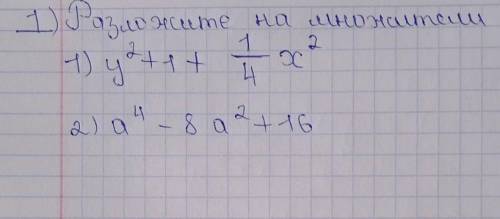 1) Разложите на множители
1) y² + 1 + 1/4 x²
2) a⁴ - 8a² + 16